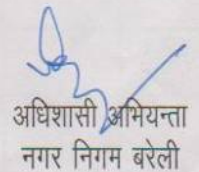 अधिशासी अभियन्ता
नगर निगम बरेली